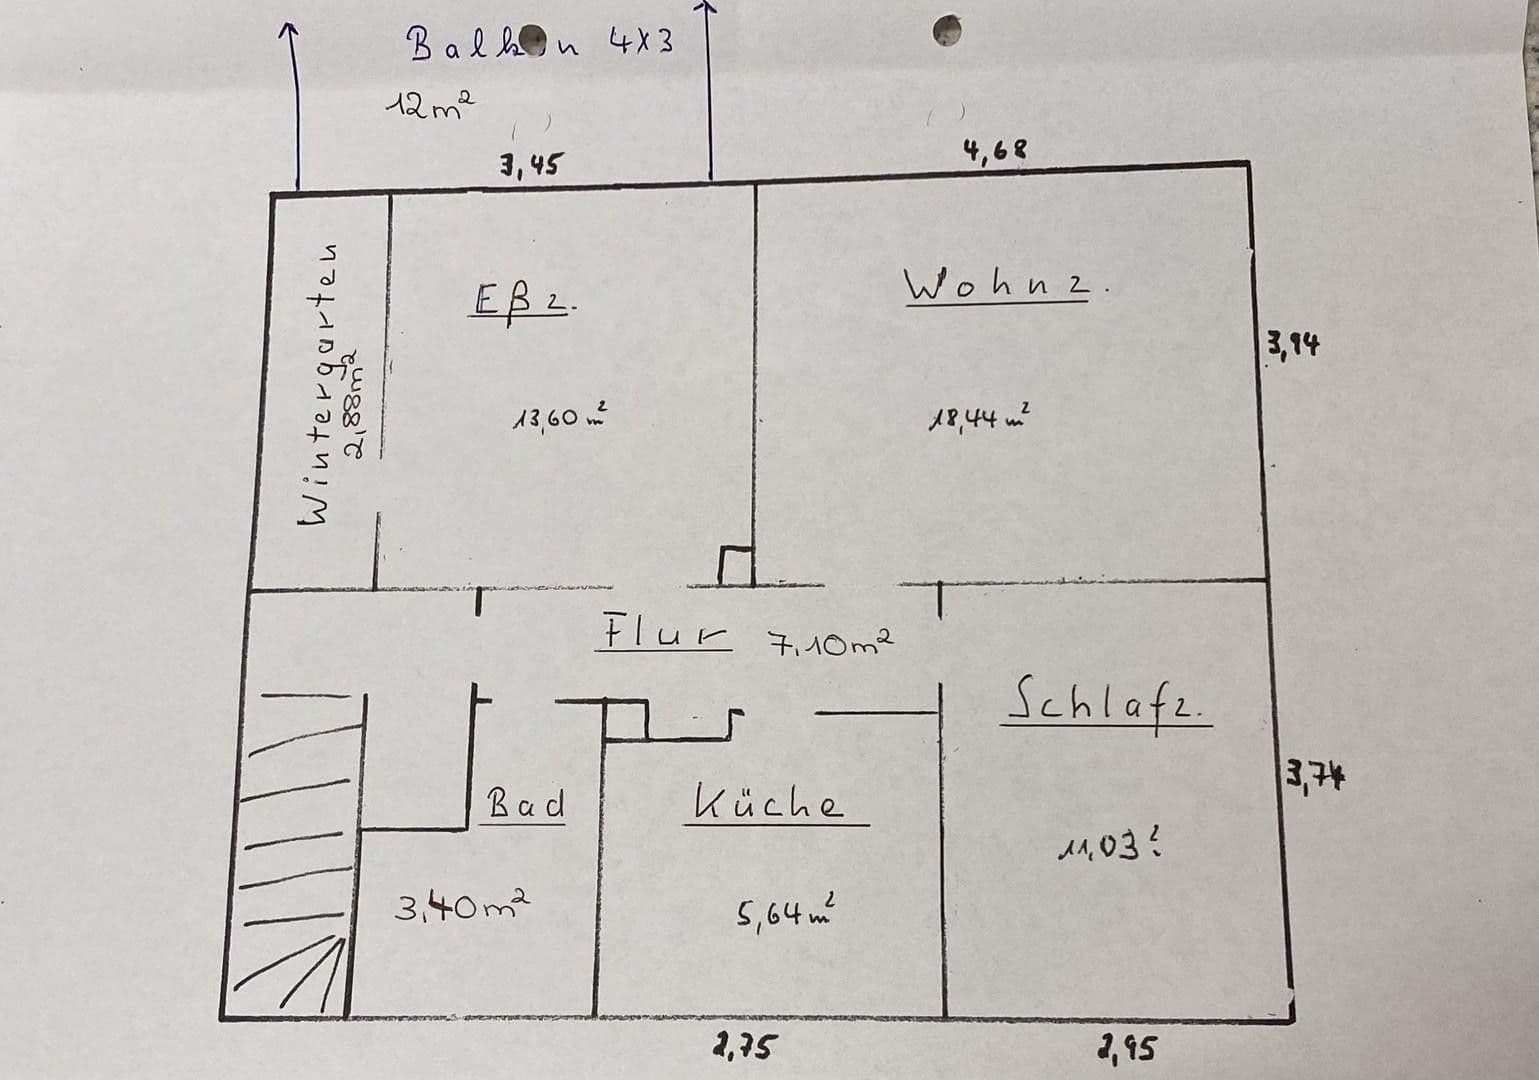 Balkon 4x3
12m²
3,45
4,68
Wintergarten
2,88m²
Eßz.
Wohnz.
3,94
13,60 m²
18,44 m²
Flur 7,10m²
Schlafz.
3,74
Bad
Küche
11,03²
3,40m²
5,64m²
2,75
2,95